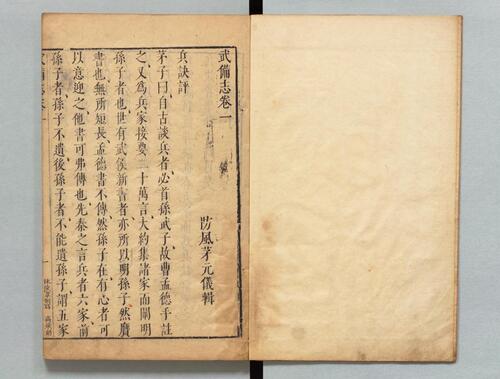 武備志卷一
防風茅元儀輯
兵訣評
茅子曰自古談兵者必首孫武子故曹孟德手註
之又為兵家接要二十萬言大約集諸家而闡明
孫子者也世有武侯新書者亦所以明孫子然廣
書也無所短長孟德書不傳然孫子在有心者可
以意迎之他書可弗傳也先秦之言兵者六家前
孫子者孫子不遺後孫子者不能遺孫子謂五家